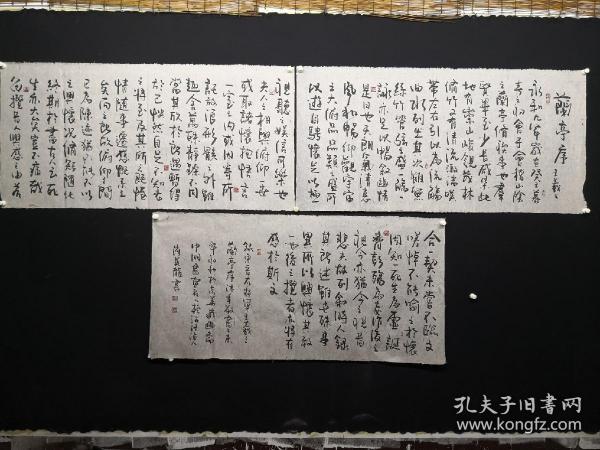 蘭亭序 王羲之
永和九年歲在癸丑暮
春之初會于會稽山陰
之蘭亭脩禊事也群
賢畢至少長咸集此
地有崇山峻領茂林
脩竹又有清流激湍映
帶左右引以為流觴
曲水列坐其次雖無
絲竹管弦之盛一觴一
詠亦足以暢敘幽情
是日也天朗氣清惠
風和暢仰觀宇宙
之大俯察品類之盛所
以遊目騁懷足以極
視聽娛信可樂也
夫人之相與俯仰一世
或取諸懷抱悟言
一室之內或因寄所
託放浪形骸之外雖
趣舍萬殊靜躁不同
當其欣於所遇暫得
於己怏然自足不知老
之將至及其所之既惓
情隨事遷感慨係之
矣向之所欣俯仰之間
已為陳跡猶不能不以
之興懷況脩短隨化
終期於盡古人云死
生亦大矣豈不痛哉
每攬昔人興感之由若
合一契未嘗不臨文
嗟悼不能喻之於懷
固知一死生為虛誕
齊彭殤為妄作後之
視今亦猶今之視昔
悲夫故列敘時人錄
其所述雖世殊事
異所以興懷其致
一也後之攬者亦將有
感於斯文
孔夫子旧书网
www.kongfz.com